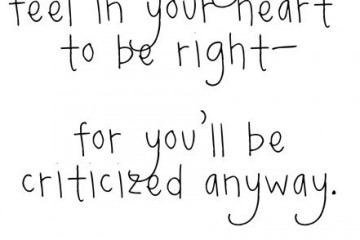 feel in your heart
to be right—
for you'll be
criticized anyway.